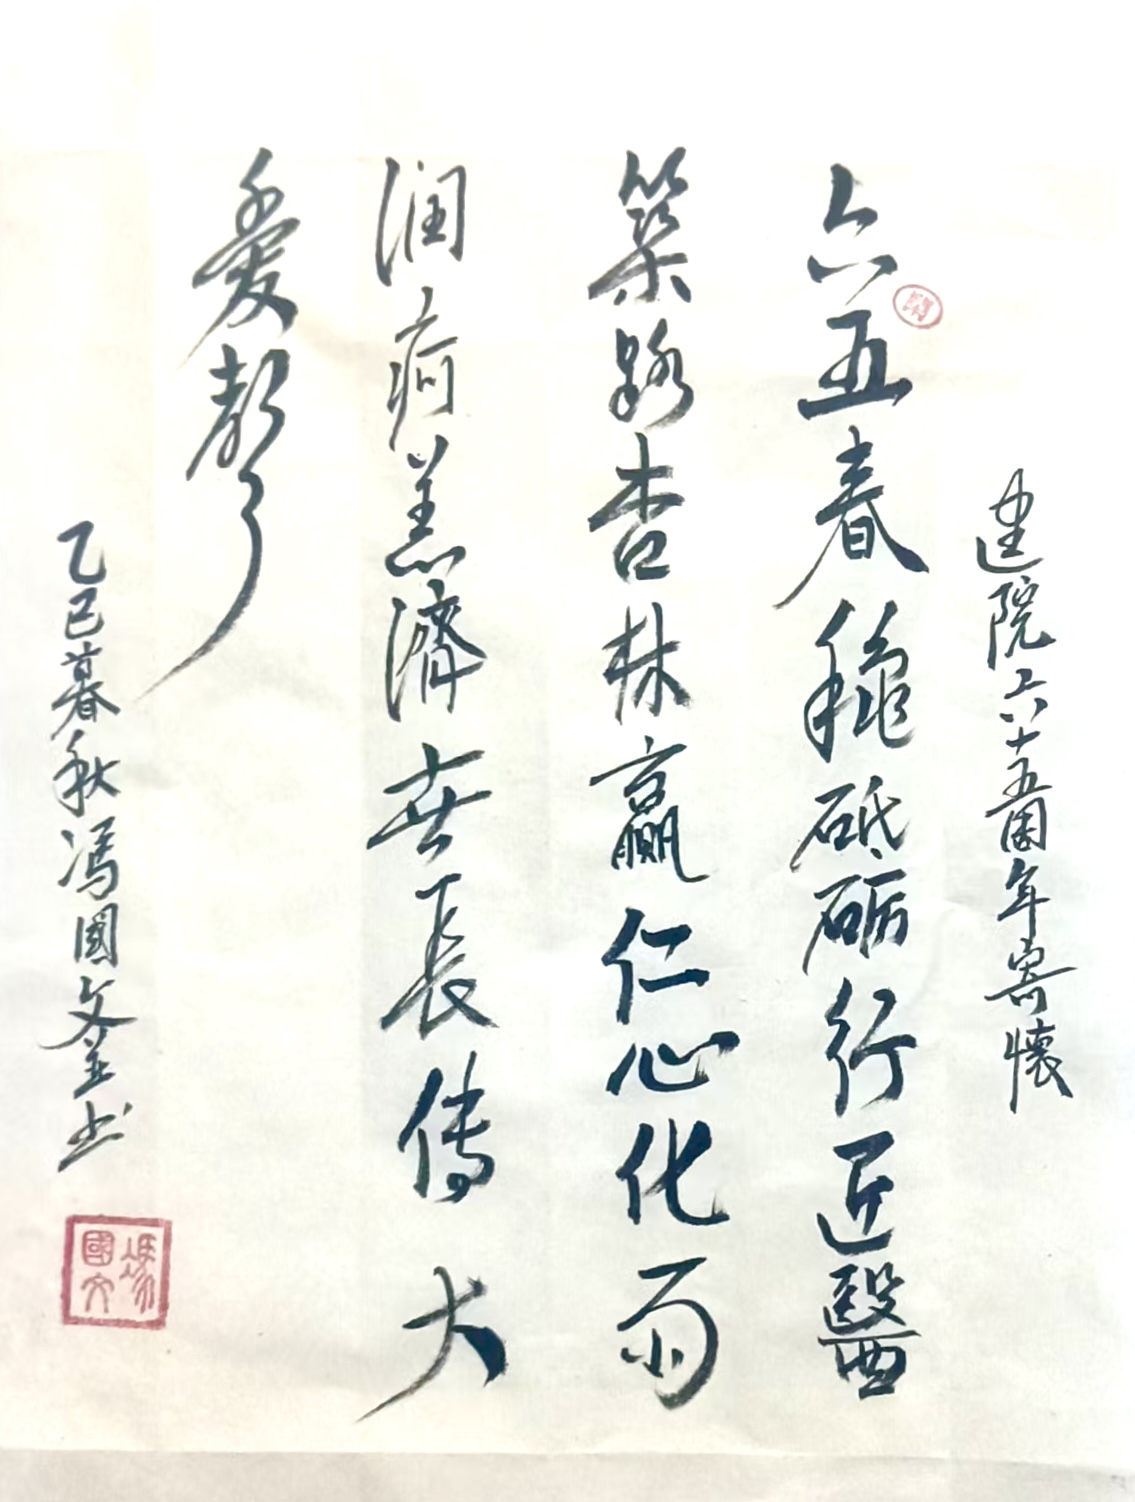 建院六十五周年寄懷
六五春龝砥砺行匠醫
築路杏林贏仁心化雨
润疴羔濟世長傳大
愛聲
乙巳暮秋馮國文並书
馮國文